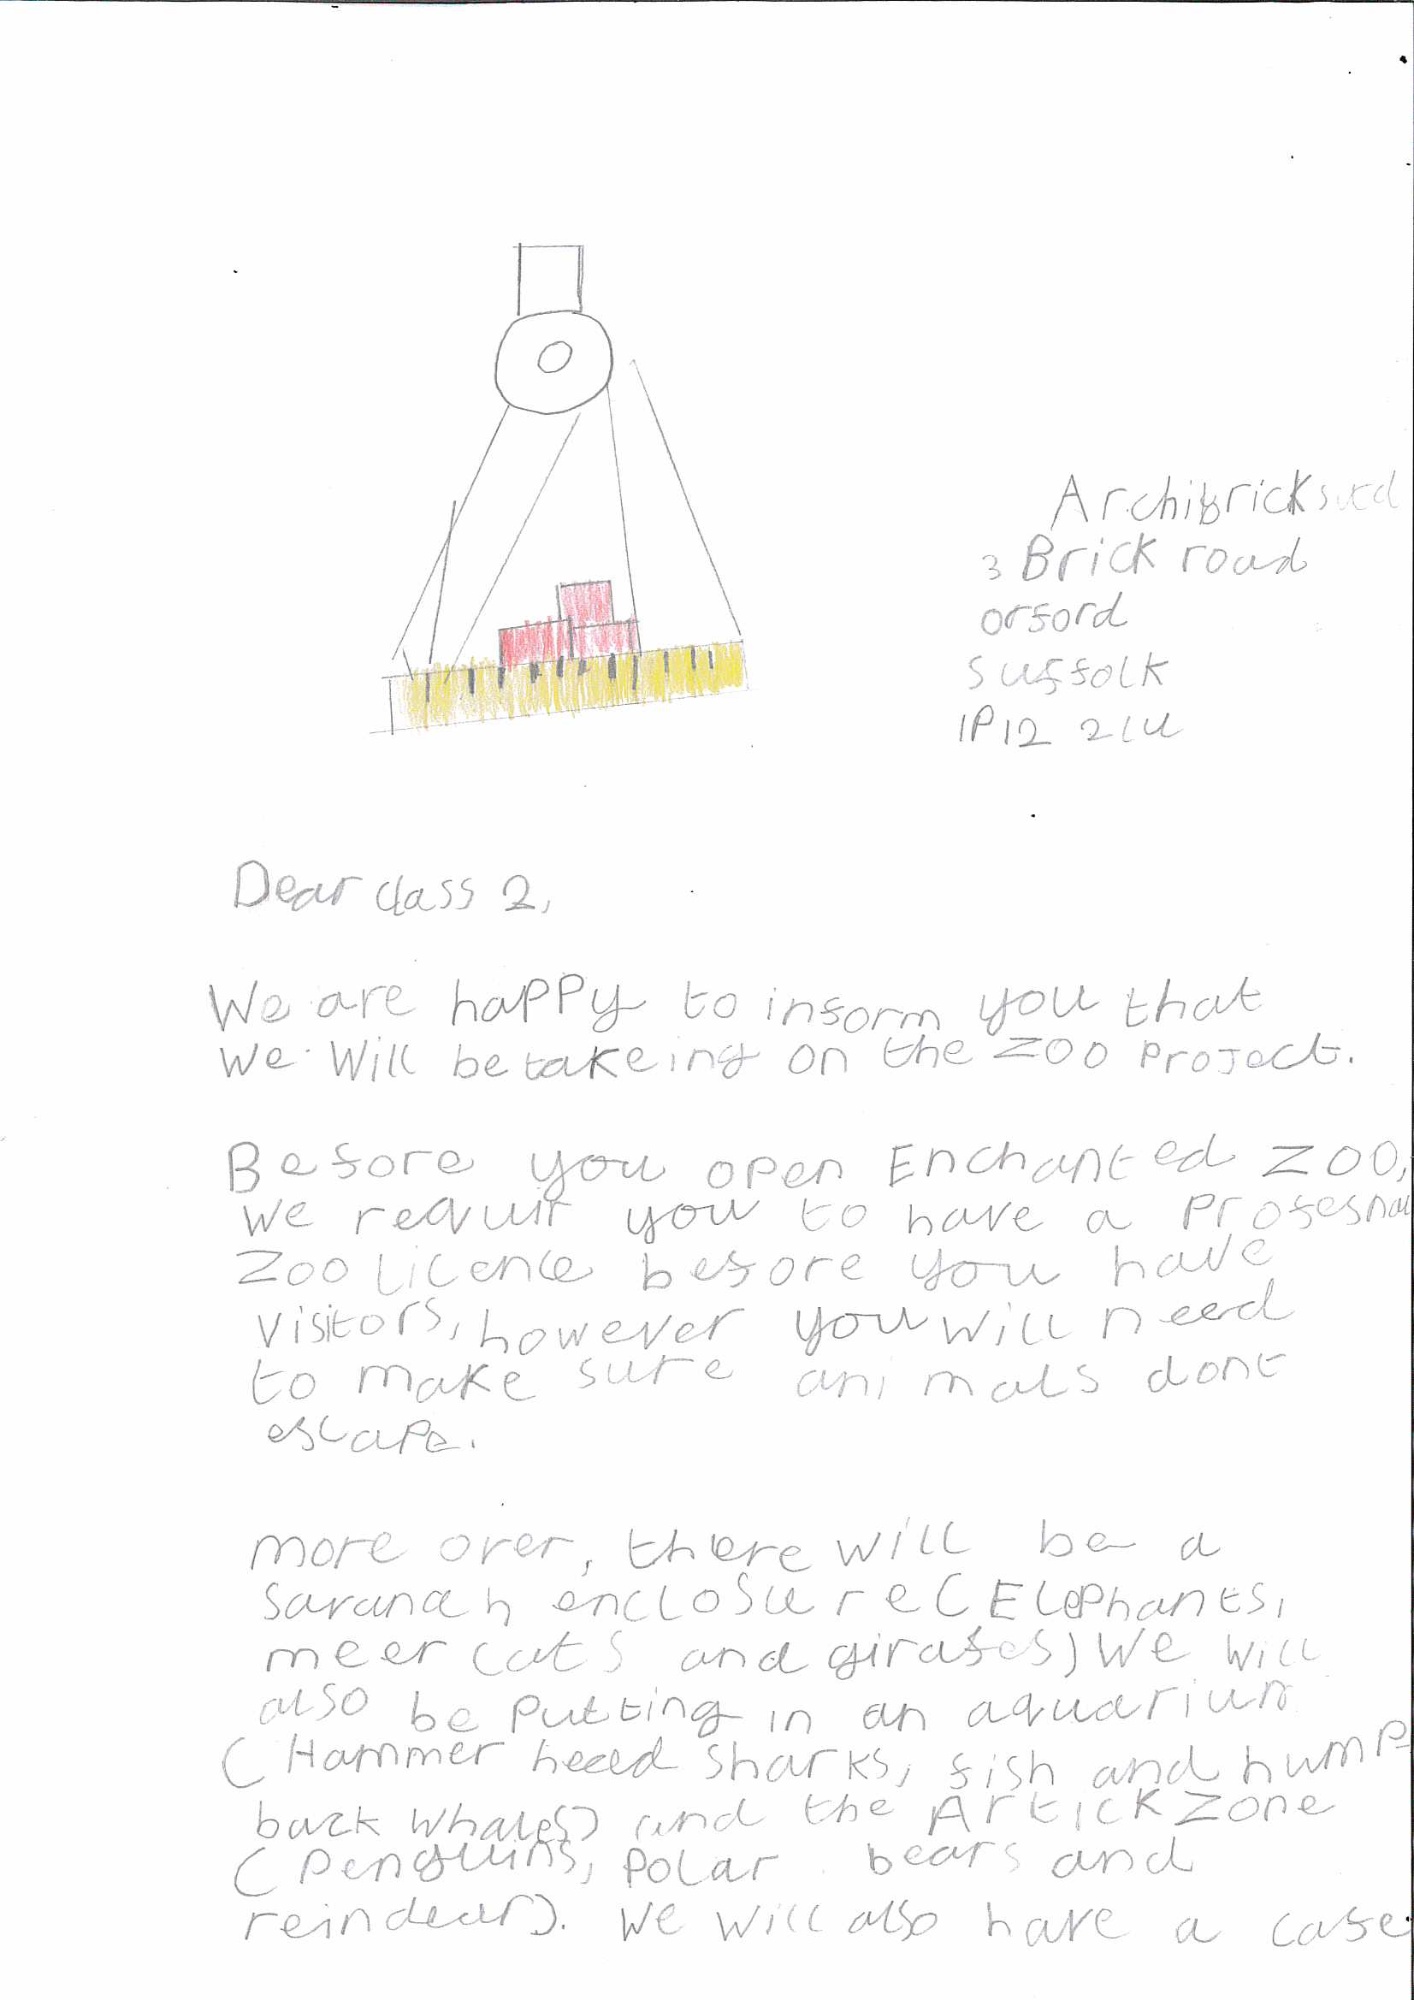 Archibricks Ltd
3 Brick road
orford
suffolk
IP12 2LU
Dear class 2,
We are happy to inform you that
we will be takeing on the zoo project.
Before you open Enchanted zoo,
we requir you to have a profesnal
zoo licence before you have
visitors, however you will need
to make sure animals dont
escape.
more over, there will be a
savanah enclosure (Elephants,
meer cats and girafes) we will
also be putting in an aquarium
(Hammer heed sharks, fish and hump
back whales) and the Artick zone
(penguins, polar bears and
reindear). we will also have a cafe